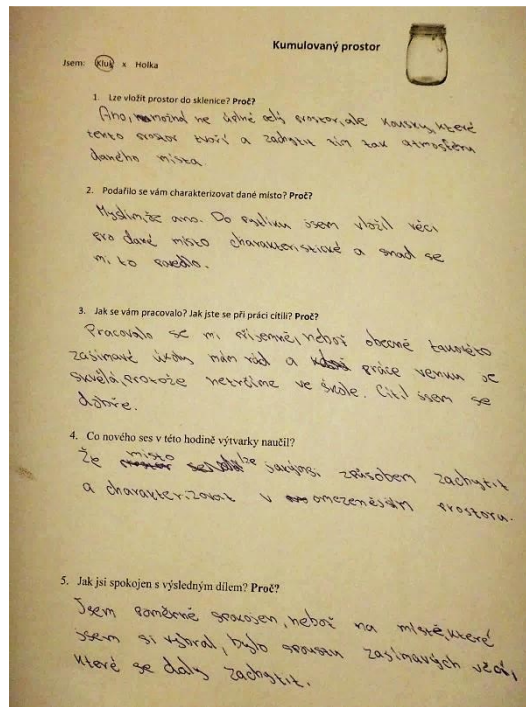 Kumulovaný prostor
Jsem: Kluk x Holka
1. Lze vložit prostor do sklenice? Proč?
Ano, možná ne úplně celý prostor, ale kousky, které
tento prostor tvoří a zachytit tím tak atmosféru
daného místa.
2. Podařilo se vám charakterizovat dané místo? Proč?
Myslím, že ano. Do pytlíku jsem vložil věci
pro dané místo charakteristické a snad se
mi to povedlo.
3. Jak se vám pracovalo? Jak jste se při práci cítili? Proč?
Pracovalo se mi příjemně, neboť obecně takovéto
zasímavé úkoly mám rád a práce venku je
skvělá, protože netrčíme ve škole. Cítil jsem se
dobře.
4. Co nového ses v této hodině výtvarky naučil?
Že místo lze jakýmsi způsobem zachytit
a charakterizovat v omezenějším prostoru.
5. Jak jsi spokojen s výsledným dílem? Proč?
Jsem poměrně spokojen, neboť na místě, které
jsem si vybral, bylo spoustu zasímavých věcí,
které se daly zachytit.